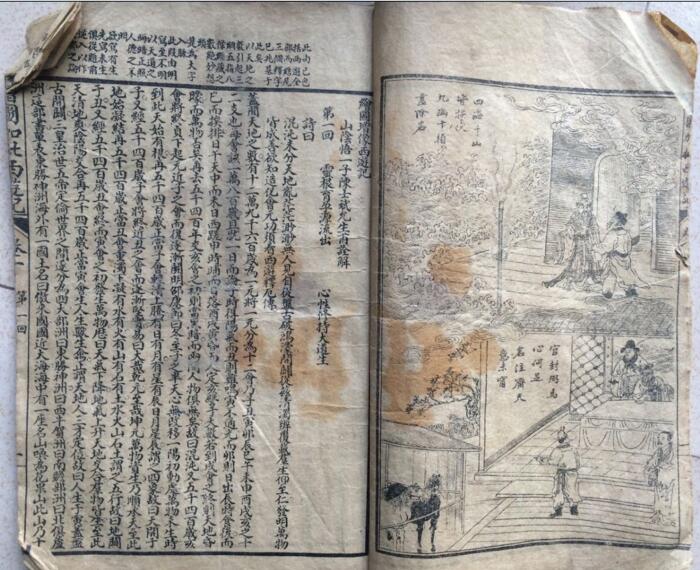 四海千山
皆拱伏
九幽十類
盡除名
官封弼馬
心何足
名注齊天
意未寧
此由已包
括西遊全
部而結尾
三個釋字
已兆基于
此矣
以天地之
數引起三
繪圖增像西遊記
山陰悟一子陳士斌允生甫詮解
第一回 靈根育孕源流出 心性修持大道生
詩曰
混沌未分天地亂茫茫渺渺無人見自從盤古破鴻濛開闢從茲清濁辨覆載群生仰至仁發明萬物
皆成善欲知造化會元功須看西遊釋厄傳
蓋聞天地之數有十二萬九千六百歲為一元將一元分為十二會乃子丑寅卯辰巳午未申酉戌亥之十
二支也每會該一萬八百歲且就一日而論子時得陽氣而丑則雞鳴寅不通光而卯則日出辰時食後而
巳而挨排日午天中而未日西蹉申時晡而日落酉戌黃昏而人定亥譬于大數若到戌會之終則天地昏
曚而萬物否矣再去五千四百歲交亥會之初則當黑暗而兩間人物俱無矣故曰混沌又五千四百歲亥
會將終貞下起元近子之會而復逐漸開明邵康節曰冬至子之半天心無改移一陽初動處萬物未生時
到此天始有根再五千四百歲正當子會輕清上騰有日有月有星有辰日月星辰謂之四象故曰天開于
子又經五千四百歲子會將終近丑之會而逐漸堅實易曰大哉乾元至哉坤元萬物資生乃順承天至此
地始凝結再五千四百歲正當丑會重濁下凝有水有火有山有石有土水火山石土謂之五行故曰地闢
于丑又經五千四百歲丑會終而寅會之初發生萬物曆曰天氣下降地氣上升天地交合群物皆生至此
天清地爽陰陽交合再五千四百歲正當寅會生人生獸生禽正謂天地人三才定位故曰人生于寅感盤
古開闢三皇治世五帝定倫世界之間遂分為四大部洲曰東勝神洲曰西牛賀洲曰南贍部洲曰北俱盧
洲這部書單表東勝神洲海外有一國土名曰傲來國國近大海海中有一座名山喚為花果山此山乃十
圖加批西遊記 卷一 第一回